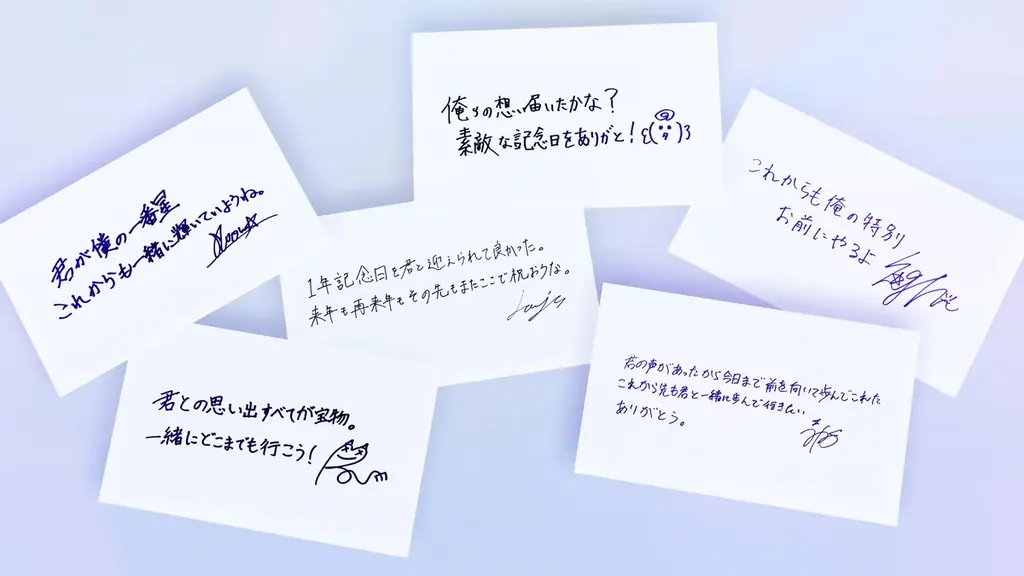 俺らの想い届いたかな?
素敵な記念日をありがと!
君が僕の一番星
これからも一緒に輝いていようね。
これからも俺の特別
お前にやるよ
1年記念日を君と迎えられて良かった。
来年も再来年もその先もまたここで祝おうな。
君との思い出すべてが宝物。
一緒にどこまでも行こう!
君の声があったから今日まで前を向いて歩んでこれた
これから先も君と一緒に歩んで行きたい
ありがとう。